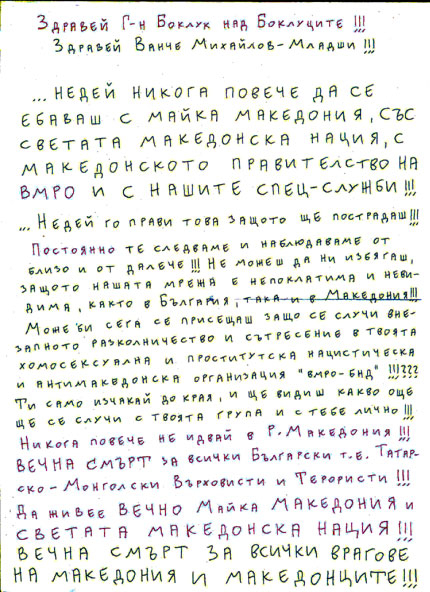 Здравей Г-н Боклук над Боклуците !!!
Здравей Ванче Михайлов-Младши !!!
...Недей никога повече да се
ебаваш с Майка Македония, със
Светата Македонска Нация, с
Македонското правителство на
ВМРО и с нашите спец-служби !!!
...Недей го прави това защото ще пострадаш!!!
Постоянно те следваме и наблюдаваме от
близо и от далече !!! Не можеш да ни избягаш,
защото нашата мрежа е непоклатима и неви-
дима, както в България, така и в Македония!!!
Може би сега се присещаш защо се случи вне-
запното разколничество и сътресение в твоята
хомосексуална и проститутска нацистическа
и антимакедонска организация "ВМРО-БНД" !!!???
Ти само изчакай до края, и ще видиш какво още
ще се случи с твоята група и с тебе лично !!!
Никога повече не идвай в Р. Македония !!!
Вечна смърт за всички Български т.е. Татар-
ско-Монголски Върховисти и Терористи !!!
Да живее вечно Майка Македония и
Светата Македонска Нация !!!
Вечна смърт за всички врагове
на Македония и Македонците !!!